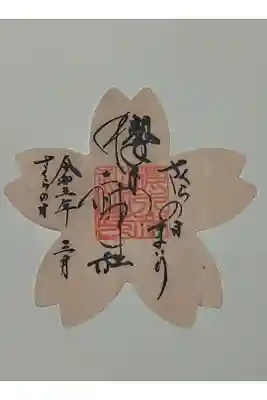 さくらの日まいり
櫻木神社
令和五年 三月
さくらの日